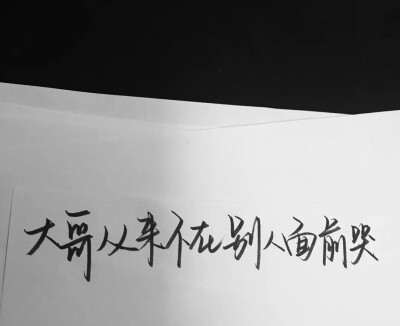 大哥从来不在别人面前哭